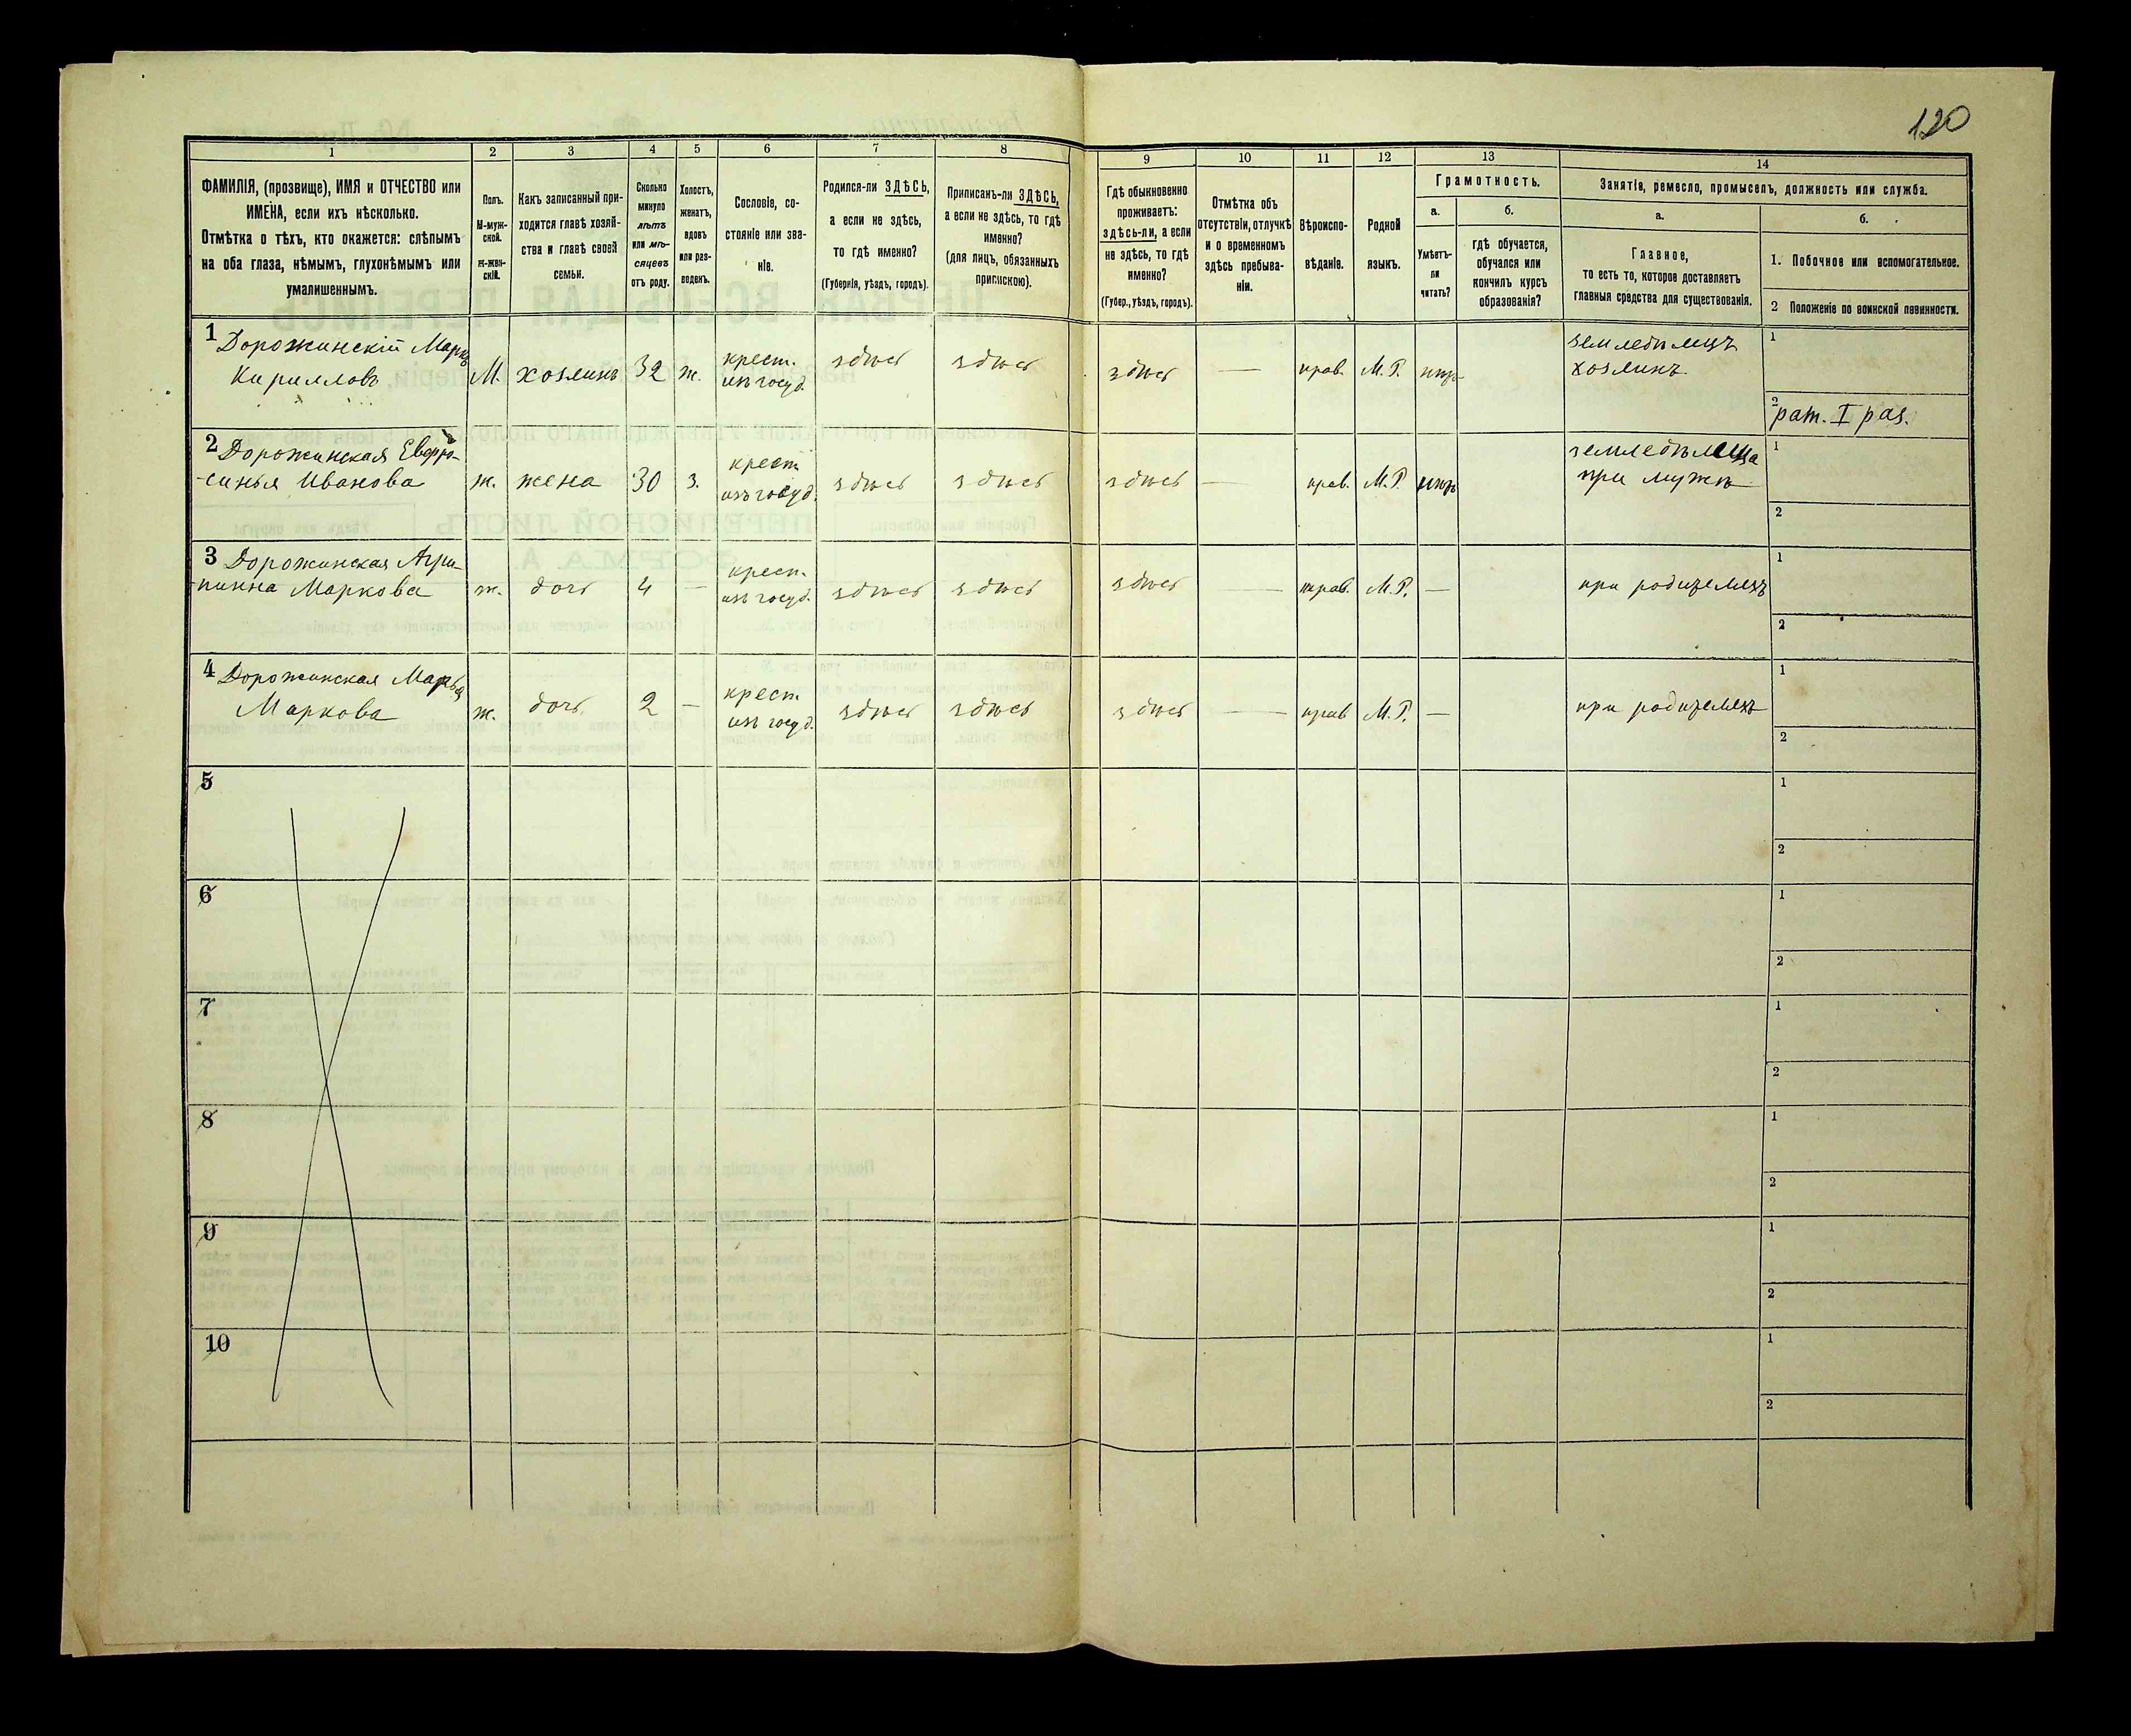 120
1 2 3 4 5 6 7 8 9 10 11 12 13 14
ФАМИЛІЯ, (прозвище), ИМЯ и ОТЧЕСТВО или
ИМЕНА, если ихъ нѣсколько.
Отмѣтка о тѣхъ, кто окажется: слѣпымъ
на оба глаза, нѣмымъ, глухонѣмымъ или
умалишеннымъ.
Полъ.
М-муж-
ской.
ж-жен-
скій.
Какъ записанный при-
ходится главѣ хозяй-
ства и главѣ своей
семьи.
Сколько
минуло
лѣтъ
или мѣ-
сяцевъ
отъ роду.
Холостъ,
женатъ,
вдовъ
или раз-
веденъ.
Сословіе, со-
стояніе или зва-
ніе.
Родился-ли ЗДѢСЬ,
а если не здѣсь,
то гдѣ именно?
(Губернія, уѣздъ, городъ).
Приписанъ-ли ЗДѢСЬ,
а если не здѣсь, то гдѣ
именно?
(для лицъ, обязанныхъ
припискою).
Гдѣ обыкновенно
проживаетъ:
здѣсь-ли, а если
не здѣсь, то гдѣ
именно?
(Губер., уѣздъ, городъ).
Отмѣтка объ
отсутствіи, отлучкѣ
и о временномъ
здѣсь пребыва-
ніи.
Вѣроиспо-
вѣданіе.
Родной
языкъ.
Грамотность.
а.
Умѣетъ-
ли
читать?
б.
гдѣ обучается,
обучался или
кончилъ курсъ
образованія?
Занятія, ремесло, промыселъ, должность или служба.
а.
Главное,
то есть то, которое доставляетъ
главныя средства для существованія.
б.
1. Побочное или вспомогательное.
2 Положеніе по воинской повинности.
1 Дорожинскій Маркъ
Кирилловъ
М. хозяинъ 32 ж.
крест.
изъ госуд.
здѣсь здѣсь здѣсь — прав. М. Р. нѣтъ
земледѣлецъ
хозяинъ
1
2 рат. I раз.
2 Дорожинская Евфро-
синья Иванова
ж. жена 30 з.
крест.
изъ госуд.
здѣсь здѣсь здѣсь — прав. М. Р. нѣтъ
земледѣлица
при мужѣ
1
2
3 Дорожинская Агри-
пинна Маркова
ж. дочь 4 —
крест.
изъ госуд.
здѣсь здѣсь здѣсь — прав. М. Р. —
при родителяхъ
1
2
4 Дорожинская Марья
Маркова
ж. дочь 2 —
крест.
изъ госуд.
здѣсь здѣсь здѣсь — прав М. Р. —
при родителяхъ
1
2
5
1
2
6
1
2
7
1
2
8
1
2
9
1
2
10
1
2